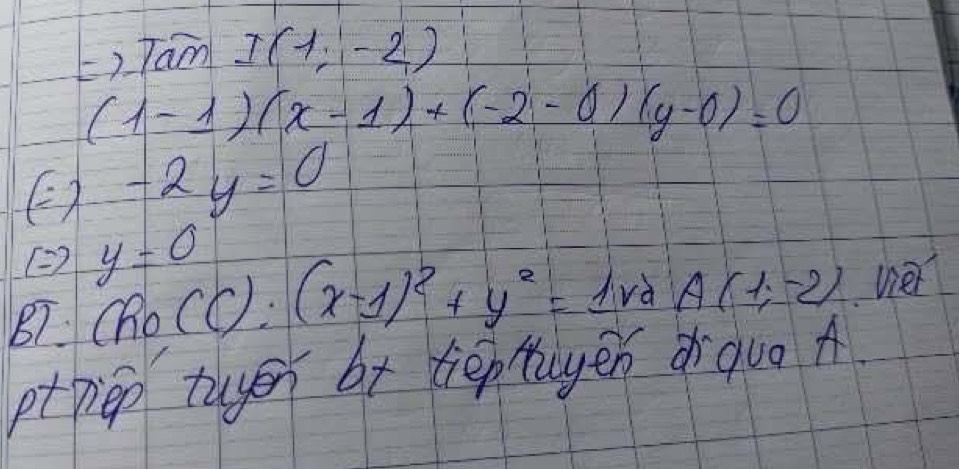 => Tâm I(1; -2)
(1-1)(x-1)+(-2-0)(y-0)=0
(=) -2y=0
(=) y=0
BT: Cho (C): (x-1)² + y² = 1 và A(1;-2). Viết
pt tiếp tuyến bt tiếp tuyến đi qua A.